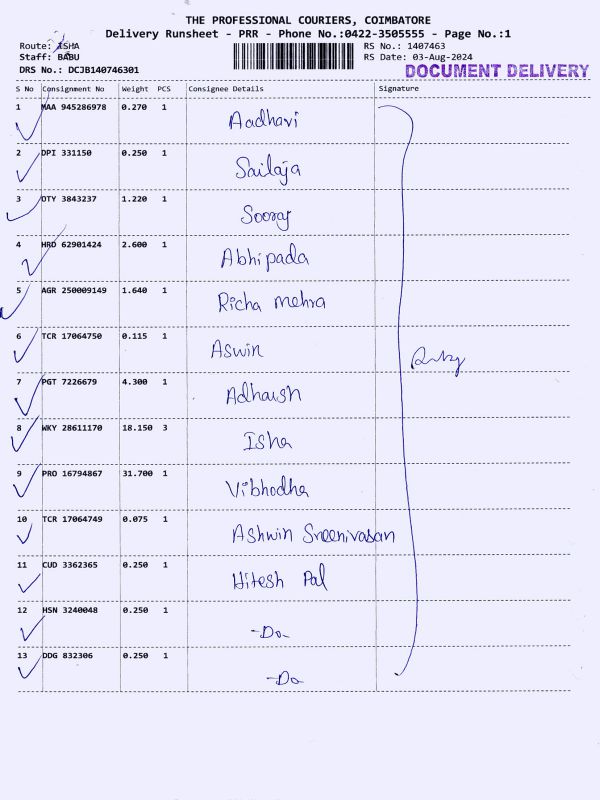 THE PROFESSIONAL COURIERS, COIMBATORE
Delivery Runsheet - PRR - Phone No.:0422-3505555 - Page No.:1
Route: ISHA
Staff: BABU
DRS No.: DCJB140746301
RS No.: 1407463
RS Date: 03-Aug-2024
DOCUMENT DELIVERY
S No Consignment No Weight PCS Consignee Details Signature
1 MAA 945286978 0.270 1 Aadhavi
2 DPI 331150 0.250 1 Sailaja
3 OTY 3843237 1.220 1 Sooraj
4 HRD 62901424 2.600 1 Abhipada
5 AGR 250009149 1.640 1 Richa mehra
6 TCR 17064750 0.115 1 Aswin
7 PGT 7226679 4.300 1 Adharsh
8 WKY 28611170 18.150 3 Isha
9 PRO 16794867 31.700 1 Vibhodha
10 TCR 17064749 0.075 1 Ashwin Sreenivasan
11 CUD 3362365 0.250 1 Hitesh Pal
12 HSN 3240048 0.250 1 -Do-
13 DDG 832306 0.250 1 -Do